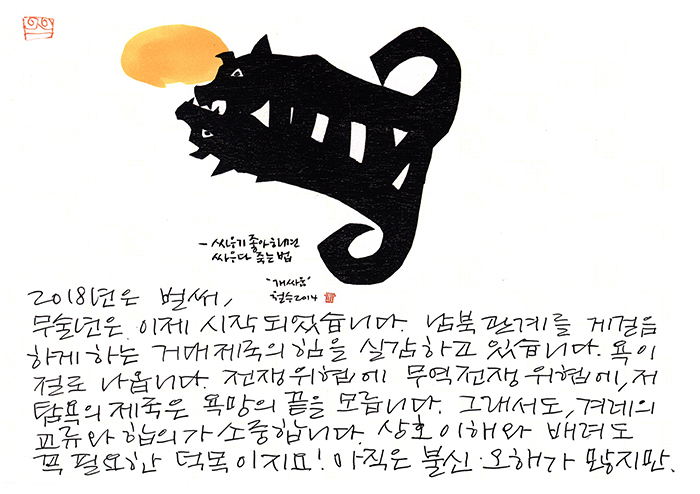 - 싸우기 좋아하면
싸우다 죽는 법
"개싸움"
철수 2014
2018년은 벌써,
무술년은 이제 시작되었습니다. 남북관계를 게걸음
하게 하는 거대제국의 힘을 실감하고 있습니다. 욕이
절로 나옵니다. 전쟁위협에 무역전쟁 위협에, 저
탐욕의 제국은 욕망의 끝을 모릅니다. 그래서도, 겨레의
교류와 합의가 소중합니다. 상호이해와 배려도
꼭 필요한 덕목이지요! 아직은 불신·오해가 많지만.